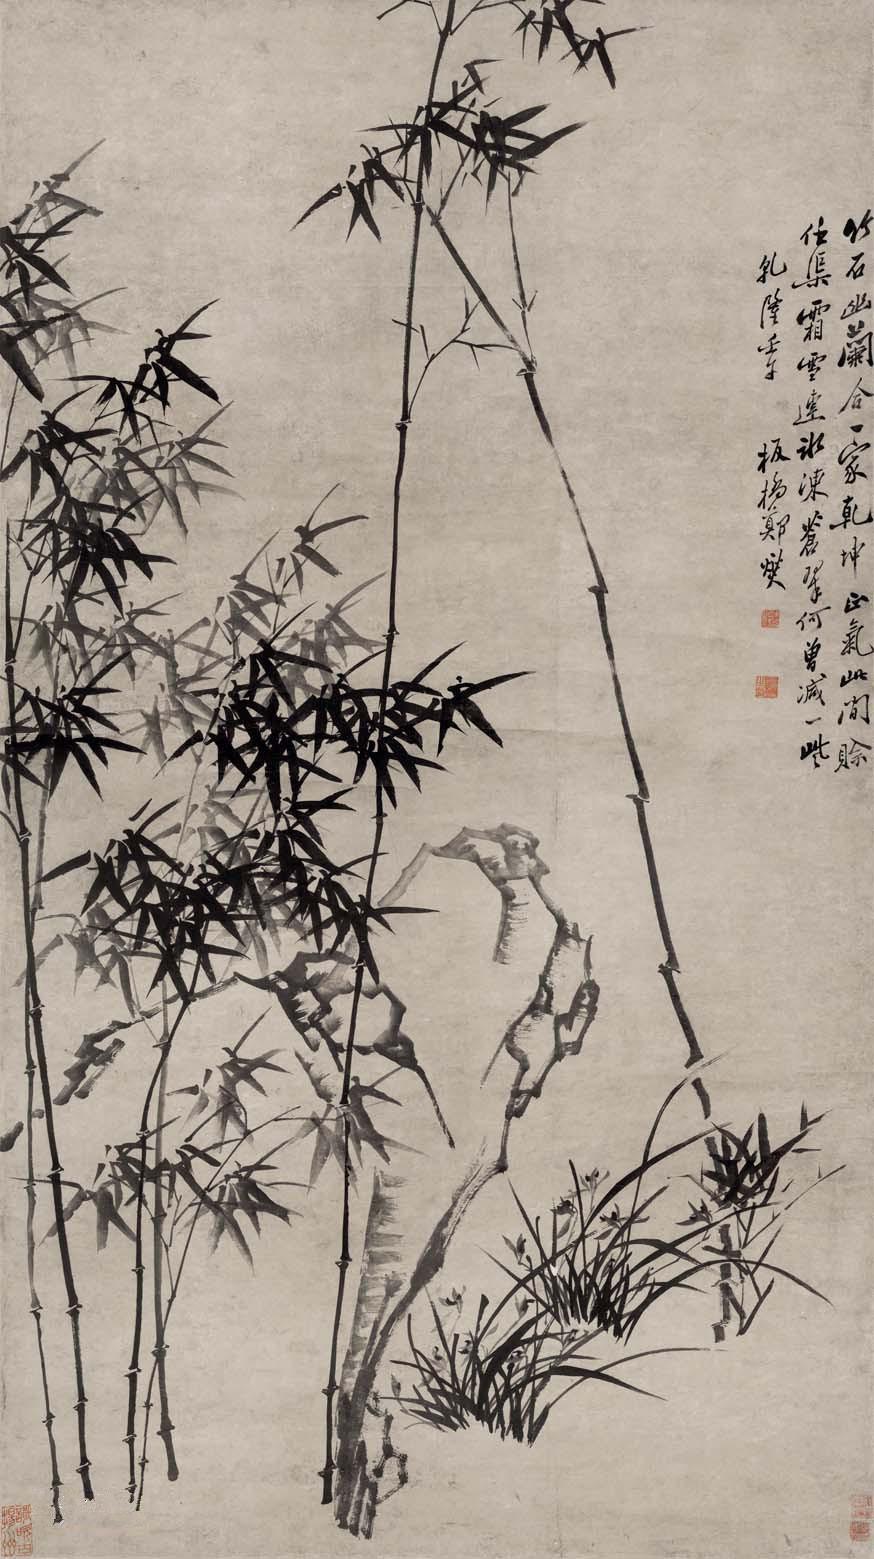 竹石幽蘭合一家乾坤正氣此間賒
任渠霜雪連冰凍蒼翠何曾減一些
乾隆壬午
板橋鄭燮